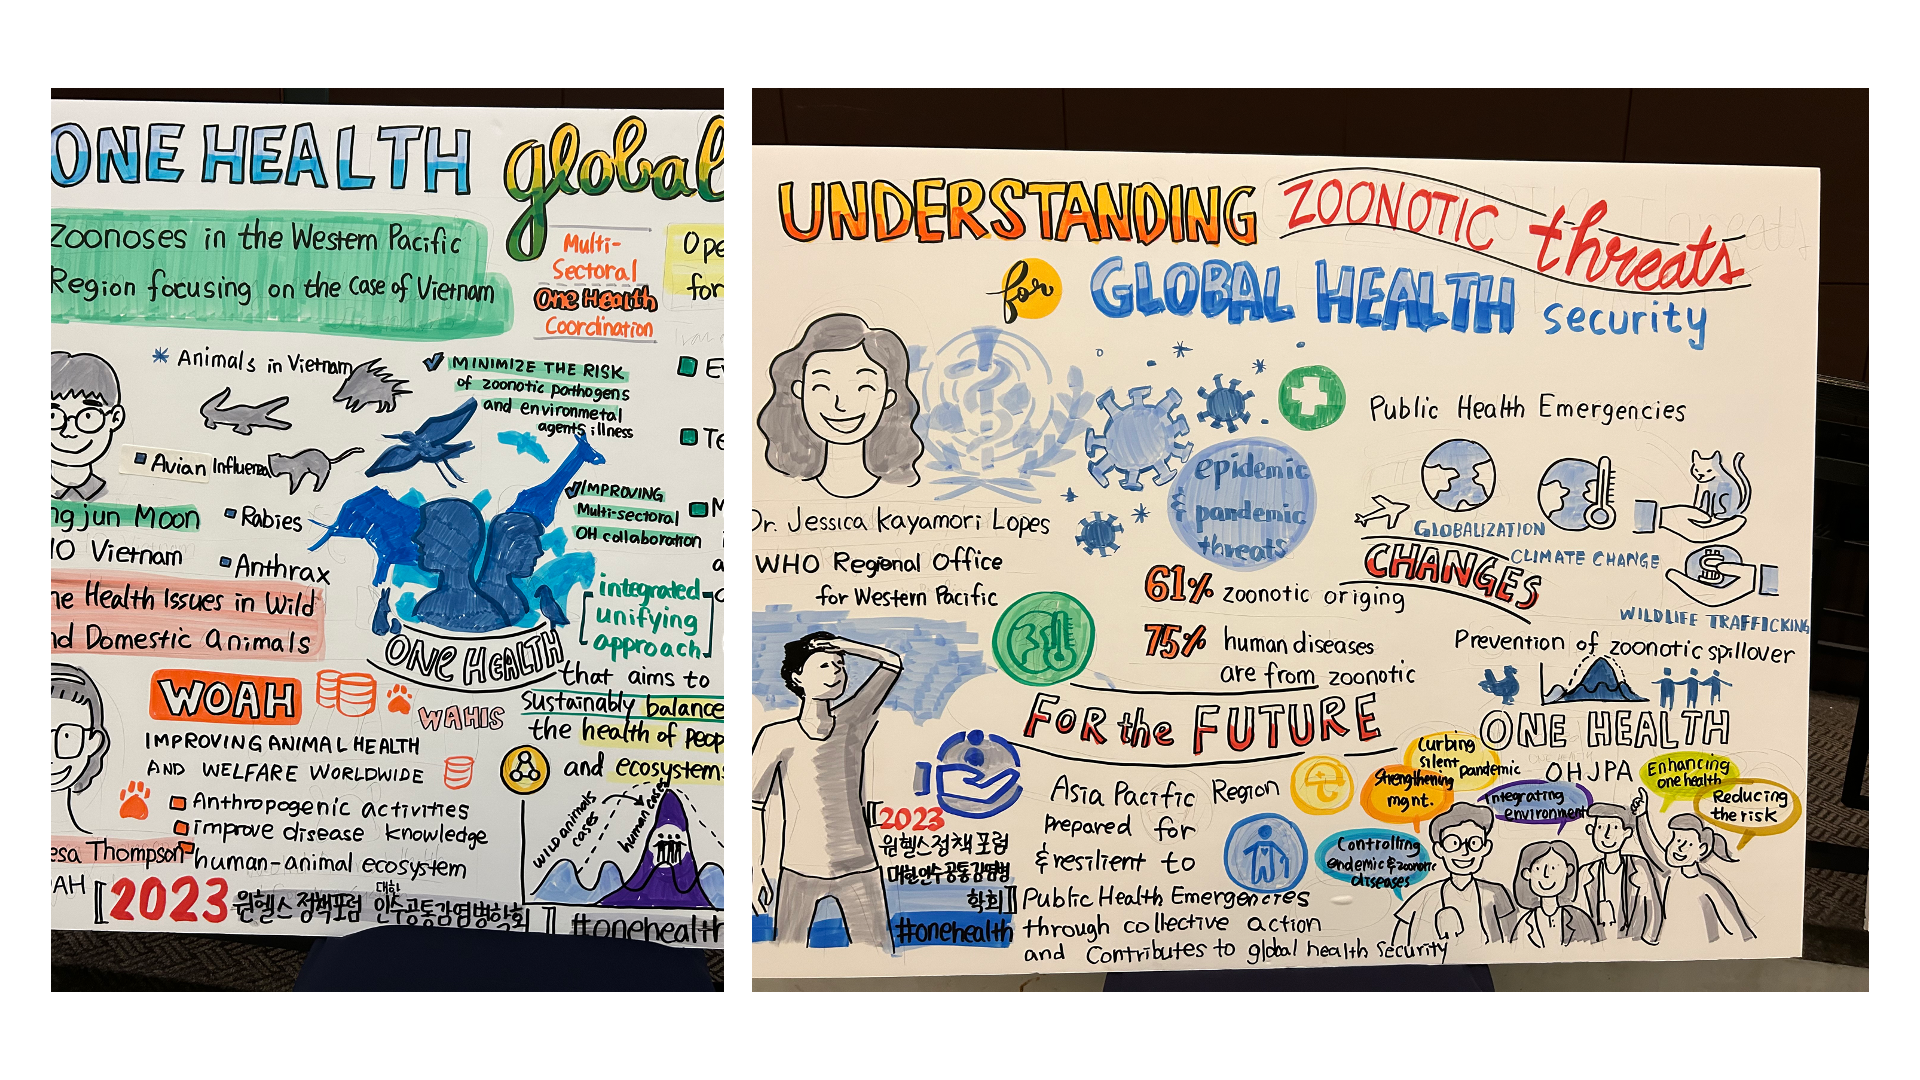 ONE HEALTH global
Zoonoses in the Western Pacific
Region focusing on the case of Vietnam
Multi-
Sectoral
One Health
Coordination
Ope
for
Animals in Vietnam
Avian Influenza
Rabies
Anthrax
ngjun Moon
IO Vietnam
ne Health Issues in Wild
nd Domestic animals
MINIMIZE THE RISK
of zoonotic pathogens
and environmetal
agents illness
IMPROVING
Multi-sectoral
OH collaboration
integrated
unifying
approach
ONE HEALTH
that aims to
sustainably balance
the health of peop
and ecosystems
WOAH
WAHIS
IMPROVING ANIMAL HEALTH
AND WELFARE WORLDWIDE
Anthropogenic activities
improve disease knowledge
human-animal ecosystem
esa Thompson
AH
wild animals
cases
human cases
[2023 원헬스 정책포럼 대한 인수공통감염병학회]
#onehealth
UNDERSTANDING ZOONOTIC threats
for GLOBAL HEALTH security
Dr. Jessica Kayamori Lopes
WHO Regional Office
for Western Pacific
epidemic
& pandemic
threats
61% zoonotic origing
75% human diseases
are from zoonotic
Public Health Emergencies
GLOBALIZATION
CLIMATE CHANGE
CHANGES
WILDLIFE TRAFFICKING
Prevention of zoonotic spillover
ONE HEALTH
OHJPA
FOR the FUTURE
Asia Pacific Region
Prepared for
& resilient to
Public Health Emergencies
through collective action
and Contributes to global health security
[2023
원헬스정책포럼
대한인수공통감염병
학회]
#onehealth
Curbing
silent pandemic
Strengthening
mgnt.
Integrating
environment
Enhancing
one health
Reducing
the risk
Controlling
endemic & zoonotic
diseases